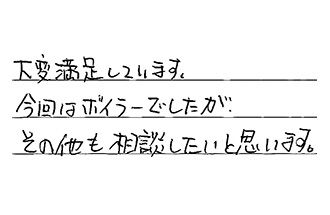 大変満足しています。
今回はボイラーでしたが、
その他も相談したいと思います。